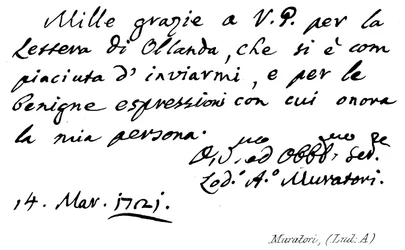 Mille grazie a V.P. per la
Lettera di Ollanda, che si è com
piaciuta d' inviarmi, e per le
benigne espressioni con cui onora
la mia persona.
ed Obbl.mo Se.
Lod.º A.º Muratori.
14. Mar. 1721.
Muratori, (Lud: A)